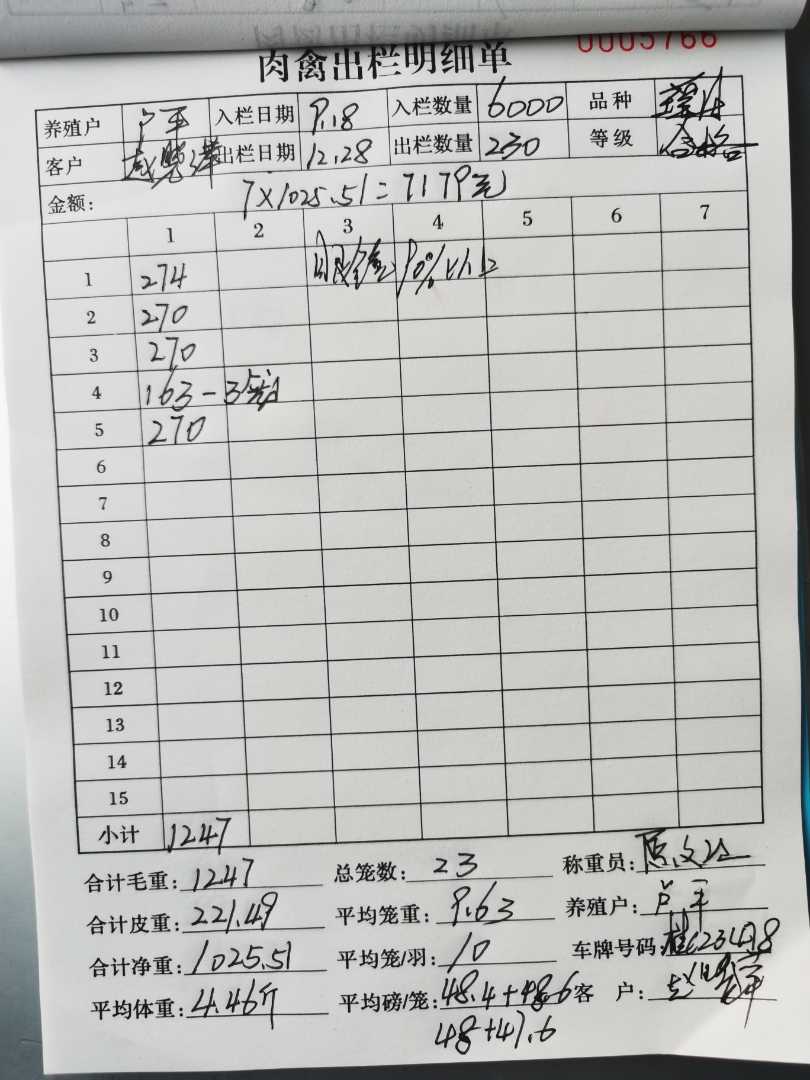 0005766
肉禽出栏明细单
养殖户 卢平 入栏日期 9.18 入栏数量 6000 品种
客户 出栏日期 12.28 出栏数量 230 等级 合格
金额: 7×1025.51=7179元
1 2 3 4 5 6 7
1 274 90%以上
2 270
3 270
4 163-3笼
5 270
6
7
8
9
10
11
12
13
14
15
小计 1247
合计毛重: 1247 总笼数: 23 称重员:
合计皮重: 221.49 平均笼重: 9.63 养殖户: 卢平
合计净重: 1025.51 平均笼/羽: 10 车牌号码:
平均体重: 4.46斤 平均磅/笼: 48.4+48.6 客 户:
48+47.6